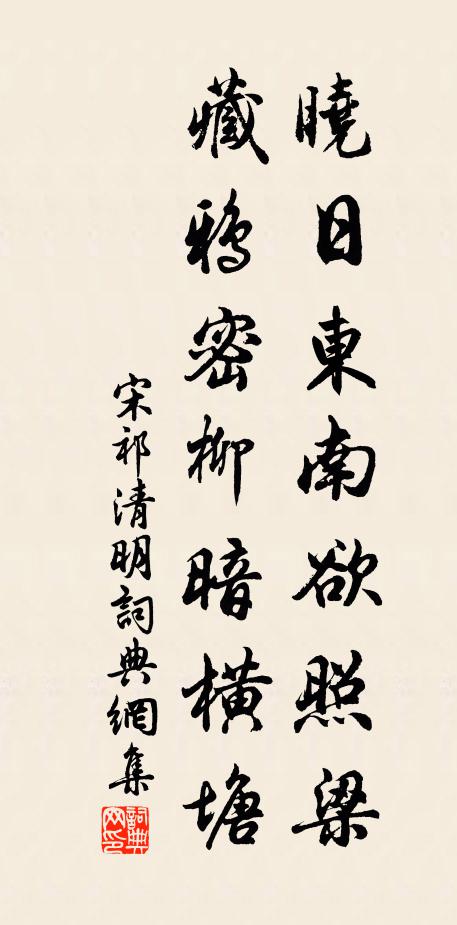 曉日東南欲照梁
藏鴉密柳暗橫塘
宋祁清明詞典網集
詞典网印